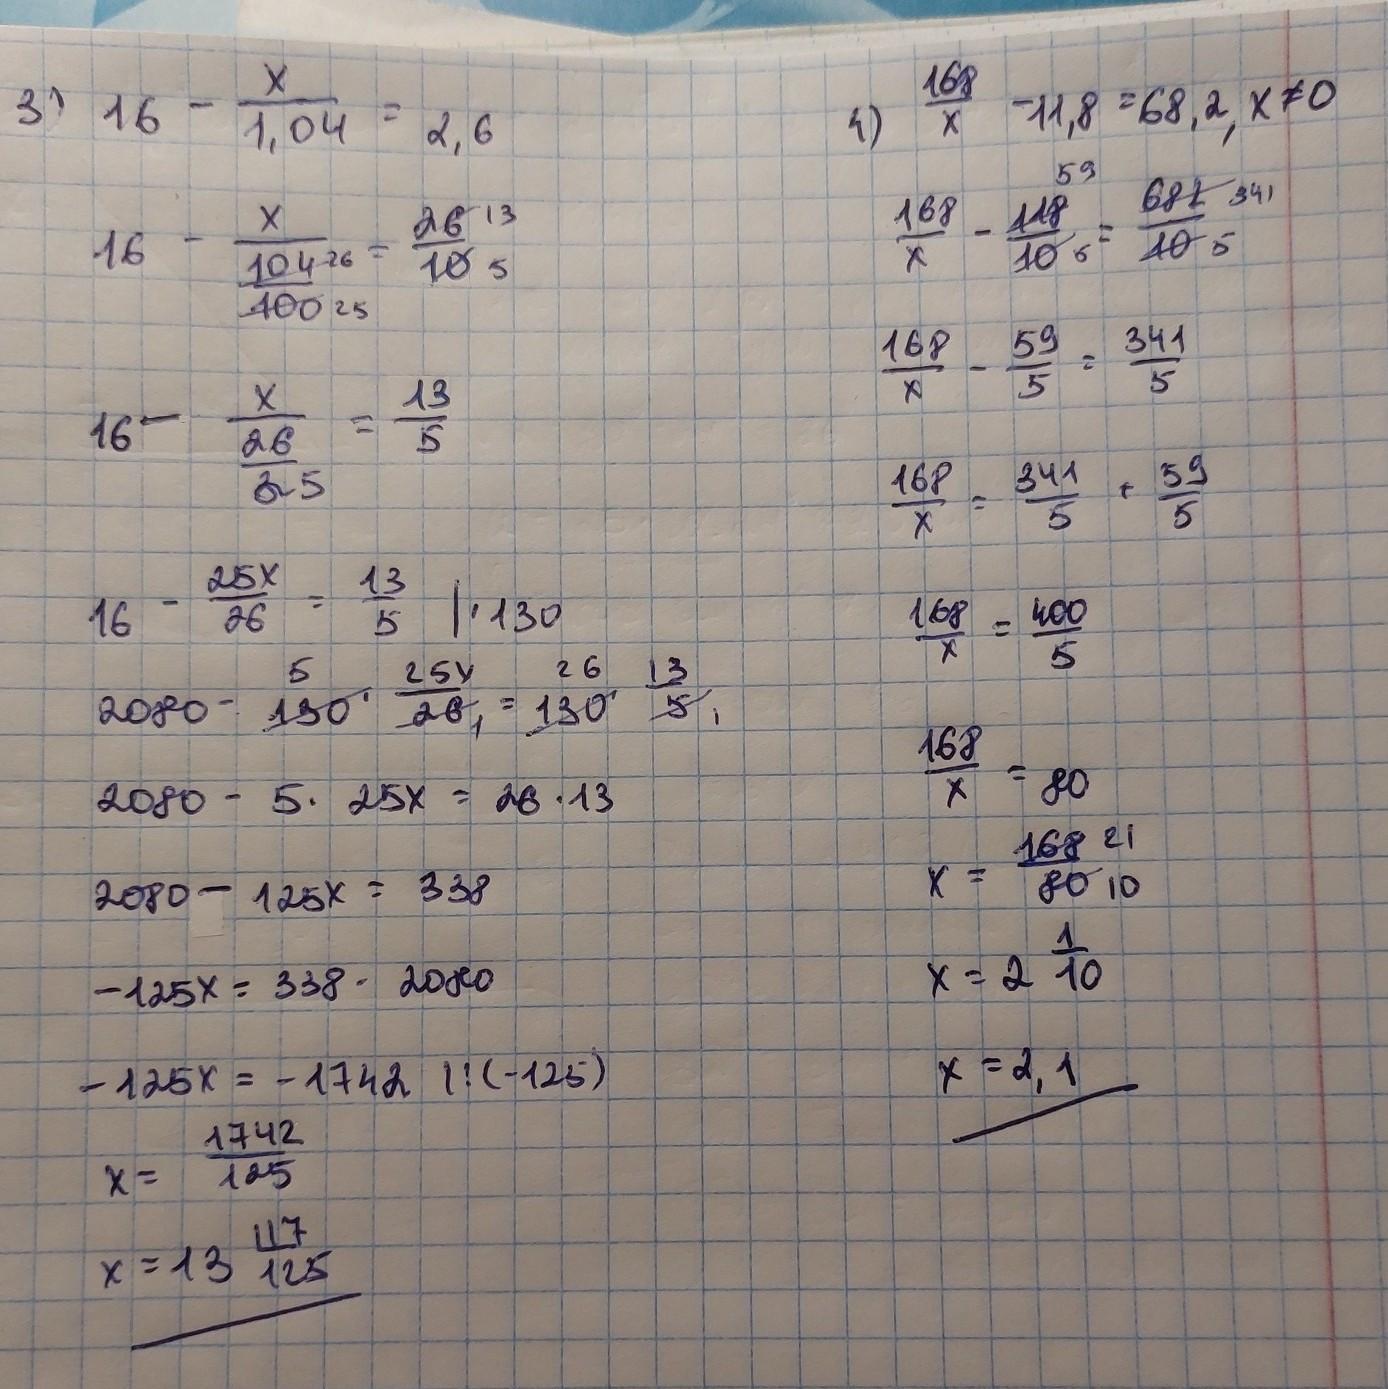 3) 16 - x/1,04 = 2,6
16 - x/(104 26/100 25) = 26 13/10 5
16 - x/(26/25) = 13/5
16 - 25x/26 = 13/5 |·130
2080 - 130 5 · 25x/26 1 = 130 26 · 13/5 1
2080 - 5 · 25x = 26 · 13
2080 - 125x = 338
-125x = 338 - 2080
-125x = -1742 |:(-125)
x = 1742/125
x = 13 117/125
4) 168/x - 11,8 = 68,2, x ≠ 0
168/x - 118 59/10 5 = 682 341/10 5
168/x - 59/5 = 341/5
168/x = 341/5 + 59/5
168/x = 400/5
168/x = 80
x = 168 21/80 10
x = 2 1/10
x = 2,1